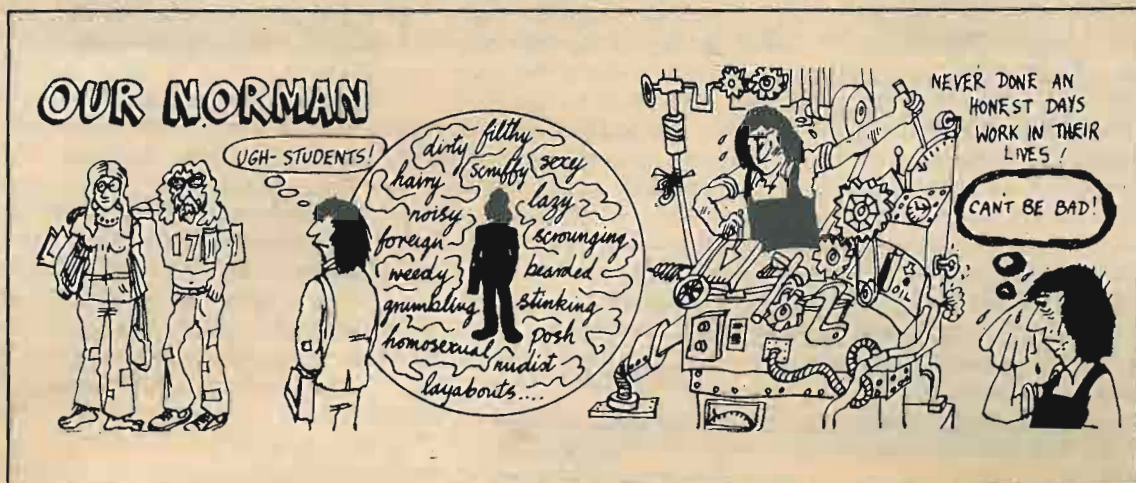 OUR NORMAN
UGH- STUDENTS!
dirty filthy
scruffy sexy
hairy lazy
noisy
foreign scrounging
weedy bearded
grumbling stinking
homosexual posh
nudist
layabouts....
171
OIL
NEVER DONE AN
HONEST DAYS
WORK IN THEIR
LIVES!
CAN'T BE BAD!